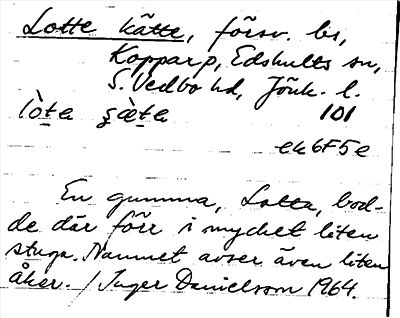 Lotte kätte, försv. bs,
Kopparp, Edshults sn,
S. Vedbo hd, Jönk. l.
lòta  ʂæ̀ta  101
ek6F5e
En gumma, Lotta, bod-
de där förr i mycket liten
stuga. Namnet avser även liten
åker. / Inger Danielsson 1964.